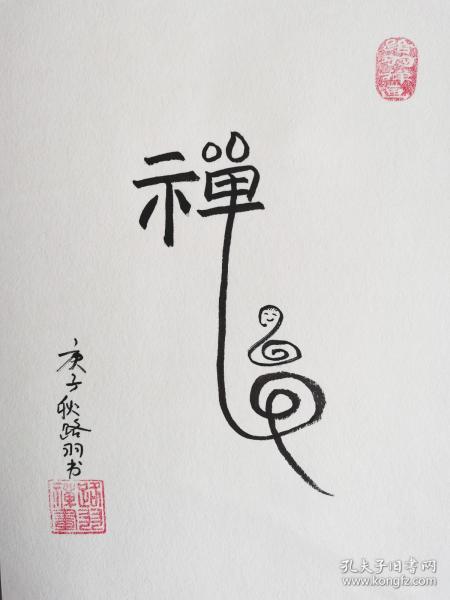 禪
庚子秋路羽书
路羽
禅画
孔夫子旧书网
www.kongfz.com